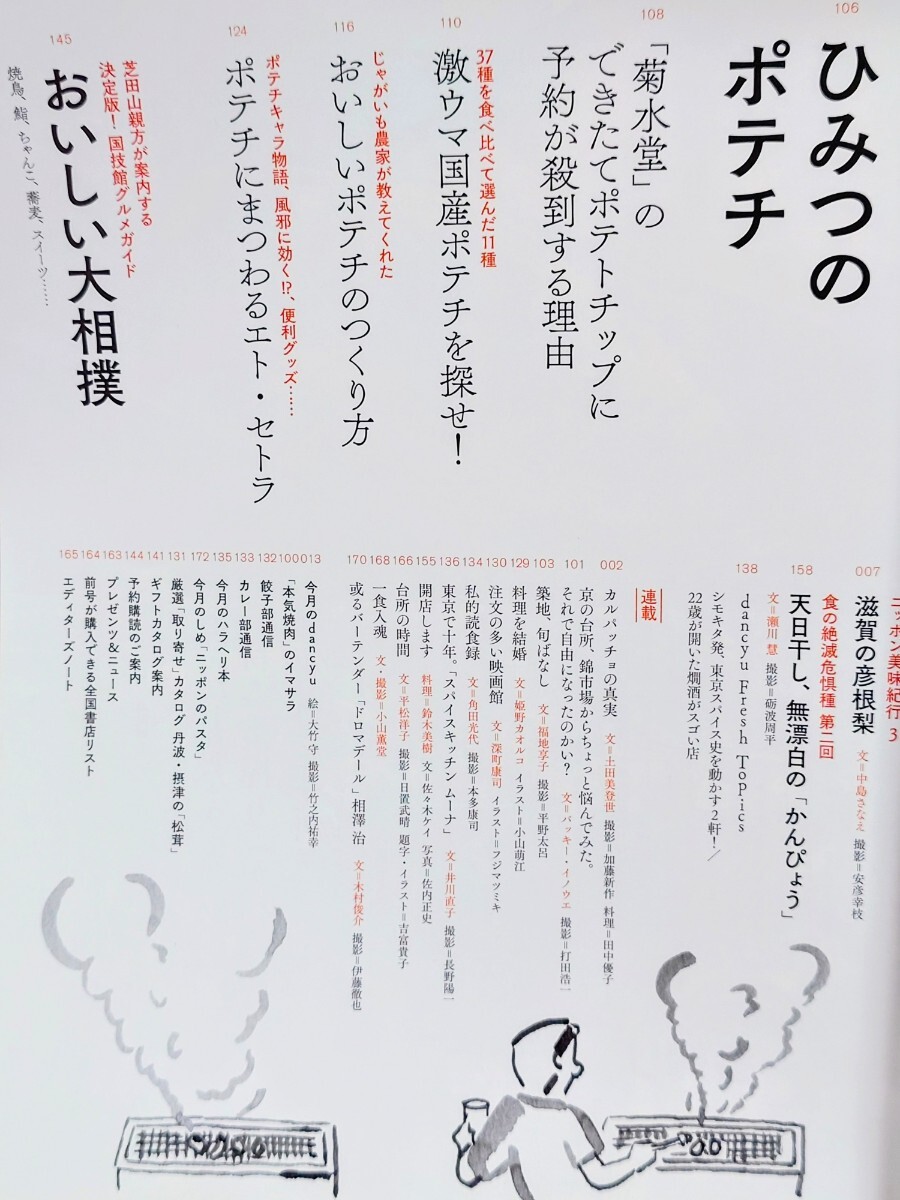 106
ひみつの
ポテチ
108
「菊水堂」の
できたてポテトチップに
予約が殺到する理由
110
37種を食べ比べて選んだ11種
激ウマ国産ポテチを探せ！
116
じゃがいも農家が教えてくれた
おいしいポテチのつくり方
124
ポテチキャラ物語、風邪に効く!?、便利グッズ……
ポテチにまつわるエト・セトラ
145
芝田山親方が案内する
決定版！ 国技館グルメガイド
おいしい大相撲
焼鳥、鮨、ちゃんこ、蕎麦、スイーツ……
ニッポン美味紀行 3
007
滋賀の彦根梨 文＝中島さなえ 撮影＝安彦幸枝
食の絶滅危惧種 第二回
158
天日干し、無漂白の「かんぴょう」
文＝瀬川 慧 撮影＝砺波周平
138
dancyu Fresh Topics
シモキタ発、東京スパイス史を動かす2軒！／
22歳が開いた燗酒がスゴい店
連載
002
カルパッチョの真実 文＝土田美登世 撮影＝加藤新作 料理＝田中優子
京の台所、錦市場からちょっと悩んでみた。
101
それで自由になったのかい？ 文＝バッキー・イノウエ 撮影＝打田浩一
103
築地、旬ばなし 文＝福地享子 撮影＝平野太呂
129
料理を結婚 文＝姫野カオルコ イラスト＝小山萌江
130
注文の多い映画館 文＝深町康司 イラスト＝フジマツミキ
134
私的読食録 文＝角田光代 撮影＝本多康司
136
東京で十年。「スパイスキッチン ムーナ」 文＝井川直子 撮影＝長野陽一
155
開店します 料理＝鈴木美樹 文＝佐々木ケイ 写真＝佐内正史
166
台所の時間 文＝平松洋子 撮影＝日置武晴 題字・イラスト＝吉富貴子
168
一食入魂 文・撮影＝小山薫堂
170
或るバーテンダー「ドロマデール」相澤 治 文＝木村俊介 撮影＝伊藤徹也
013
今月のdancyu 絵＝大竹守 撮影＝竹之内祐幸
100
「本気焼肉」のイマサラ
132
餃子部通信
133
カレー部通信
135
今月のハラヘリ本
172
今月のしめ「ニッポンのパスタ」
131
厳選「取り寄せ」カタログ 丹波・摂津の「松茸」
141
ギフトカタログ案内
144
予約購読のご案内
163
プレゼンツ＆ニュース
164
前号が購入できる全国書店リスト
165
エディターズノート